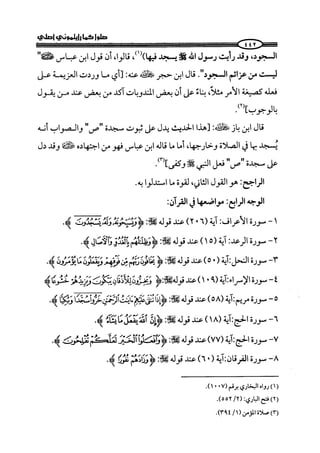 صلوا كما رأيتموني أصلي
١٤٢
السجود، وقد رأيت رسول الله ﷺ يسجد فيها)(١)، قالوا، أن قول ابن عباس ﷺ "
ليست من عزائم السجود". قال ابن حجر ﷺ عنه: [أي ما وردت العزيمة على
فعله كصيغة الأمر مثلاً، بناءً على أن بعض المندوبات آكد من بعض عند من يقول
بالوجوب](٢).
قال ابن باز ﷺ: [هذا الحديث يدل على ثبوت سجدة "ص" والصواب أنه
يُسجد بها في الصلاة وخارجها، أما ما قاله ابن عباس فهو من اجتهاده ﷺ وقد دل
على سجدة "ص" فعل النبي ﷺ وكفى](٣).
الراجح: هو القول الثاني، لقوة ما استدلوا به.
الوجه الرابع: مواضعها في القرآن:
١- سورة الأعراف: آية (٢٠٦) عند قوله ﷻ: ﴿ وَيُسَبِّحُونَهُ وَلَهُ يَسْجُدُونَ ﴾.
٢- سورة الرعد: آية (١٥) عند قوله ﷻ: ﴿ وَظِلَالُهُم بِالْغُدُوِّ وَالْآصَالِ ﴾.
٣- سورة النحل: آية (٥٠) عند قوله ﷻ: ﴿ يَخَافُونَ رَبَّهُم مِّن فَوْقِهِمْ وَيَفْعَلُونَ مَا يُؤْمَرُونَ ﴾.
٤- سورة الإسراء: آية (١٠٩) عند قوله ﷻ: ﴿ وَيَخِرُّونَ لِلْأَذْقَانِ يَبْكُونَ وَيَزِيدُهُمْ خُشُوعًا ﴾.
٥- سورة مريم: آية (٥٨) عند قوله ﷻ: ﴿ إِذَا تُتْلَىٰ عَلَيْهِمْ آيَاتُ الرَّحْمَٰنِ خَرُّوا سُجَّدًا وَبُكِيًّا ﴾.
٦- سورة الحج: آية (١٨) عند قوله ﷻ: ﴿ إِنَّ اللَّهَ يَفْعَلُ مَا يَشَاءُ ﴾.
٧- سورة الحج: آية (٧٧) عند قوله ﷻ: ﴿ وَافْعَلُوا الْخَيْرَ لَعَلَّكُمْ تُفْلِحُونَ ﴾.
٨- سورة الفرقان: آية (٦٠) عند قوله ﷻ: ﴿ وَزَادَهُمْ نُفُورًا ﴾.
(١) رواه البخاري برقم (١٠٠٧).
(٢) فتح الباري: (٥٥٢/٢).
(٣) صلاة المؤمن (٣٩٤/١).